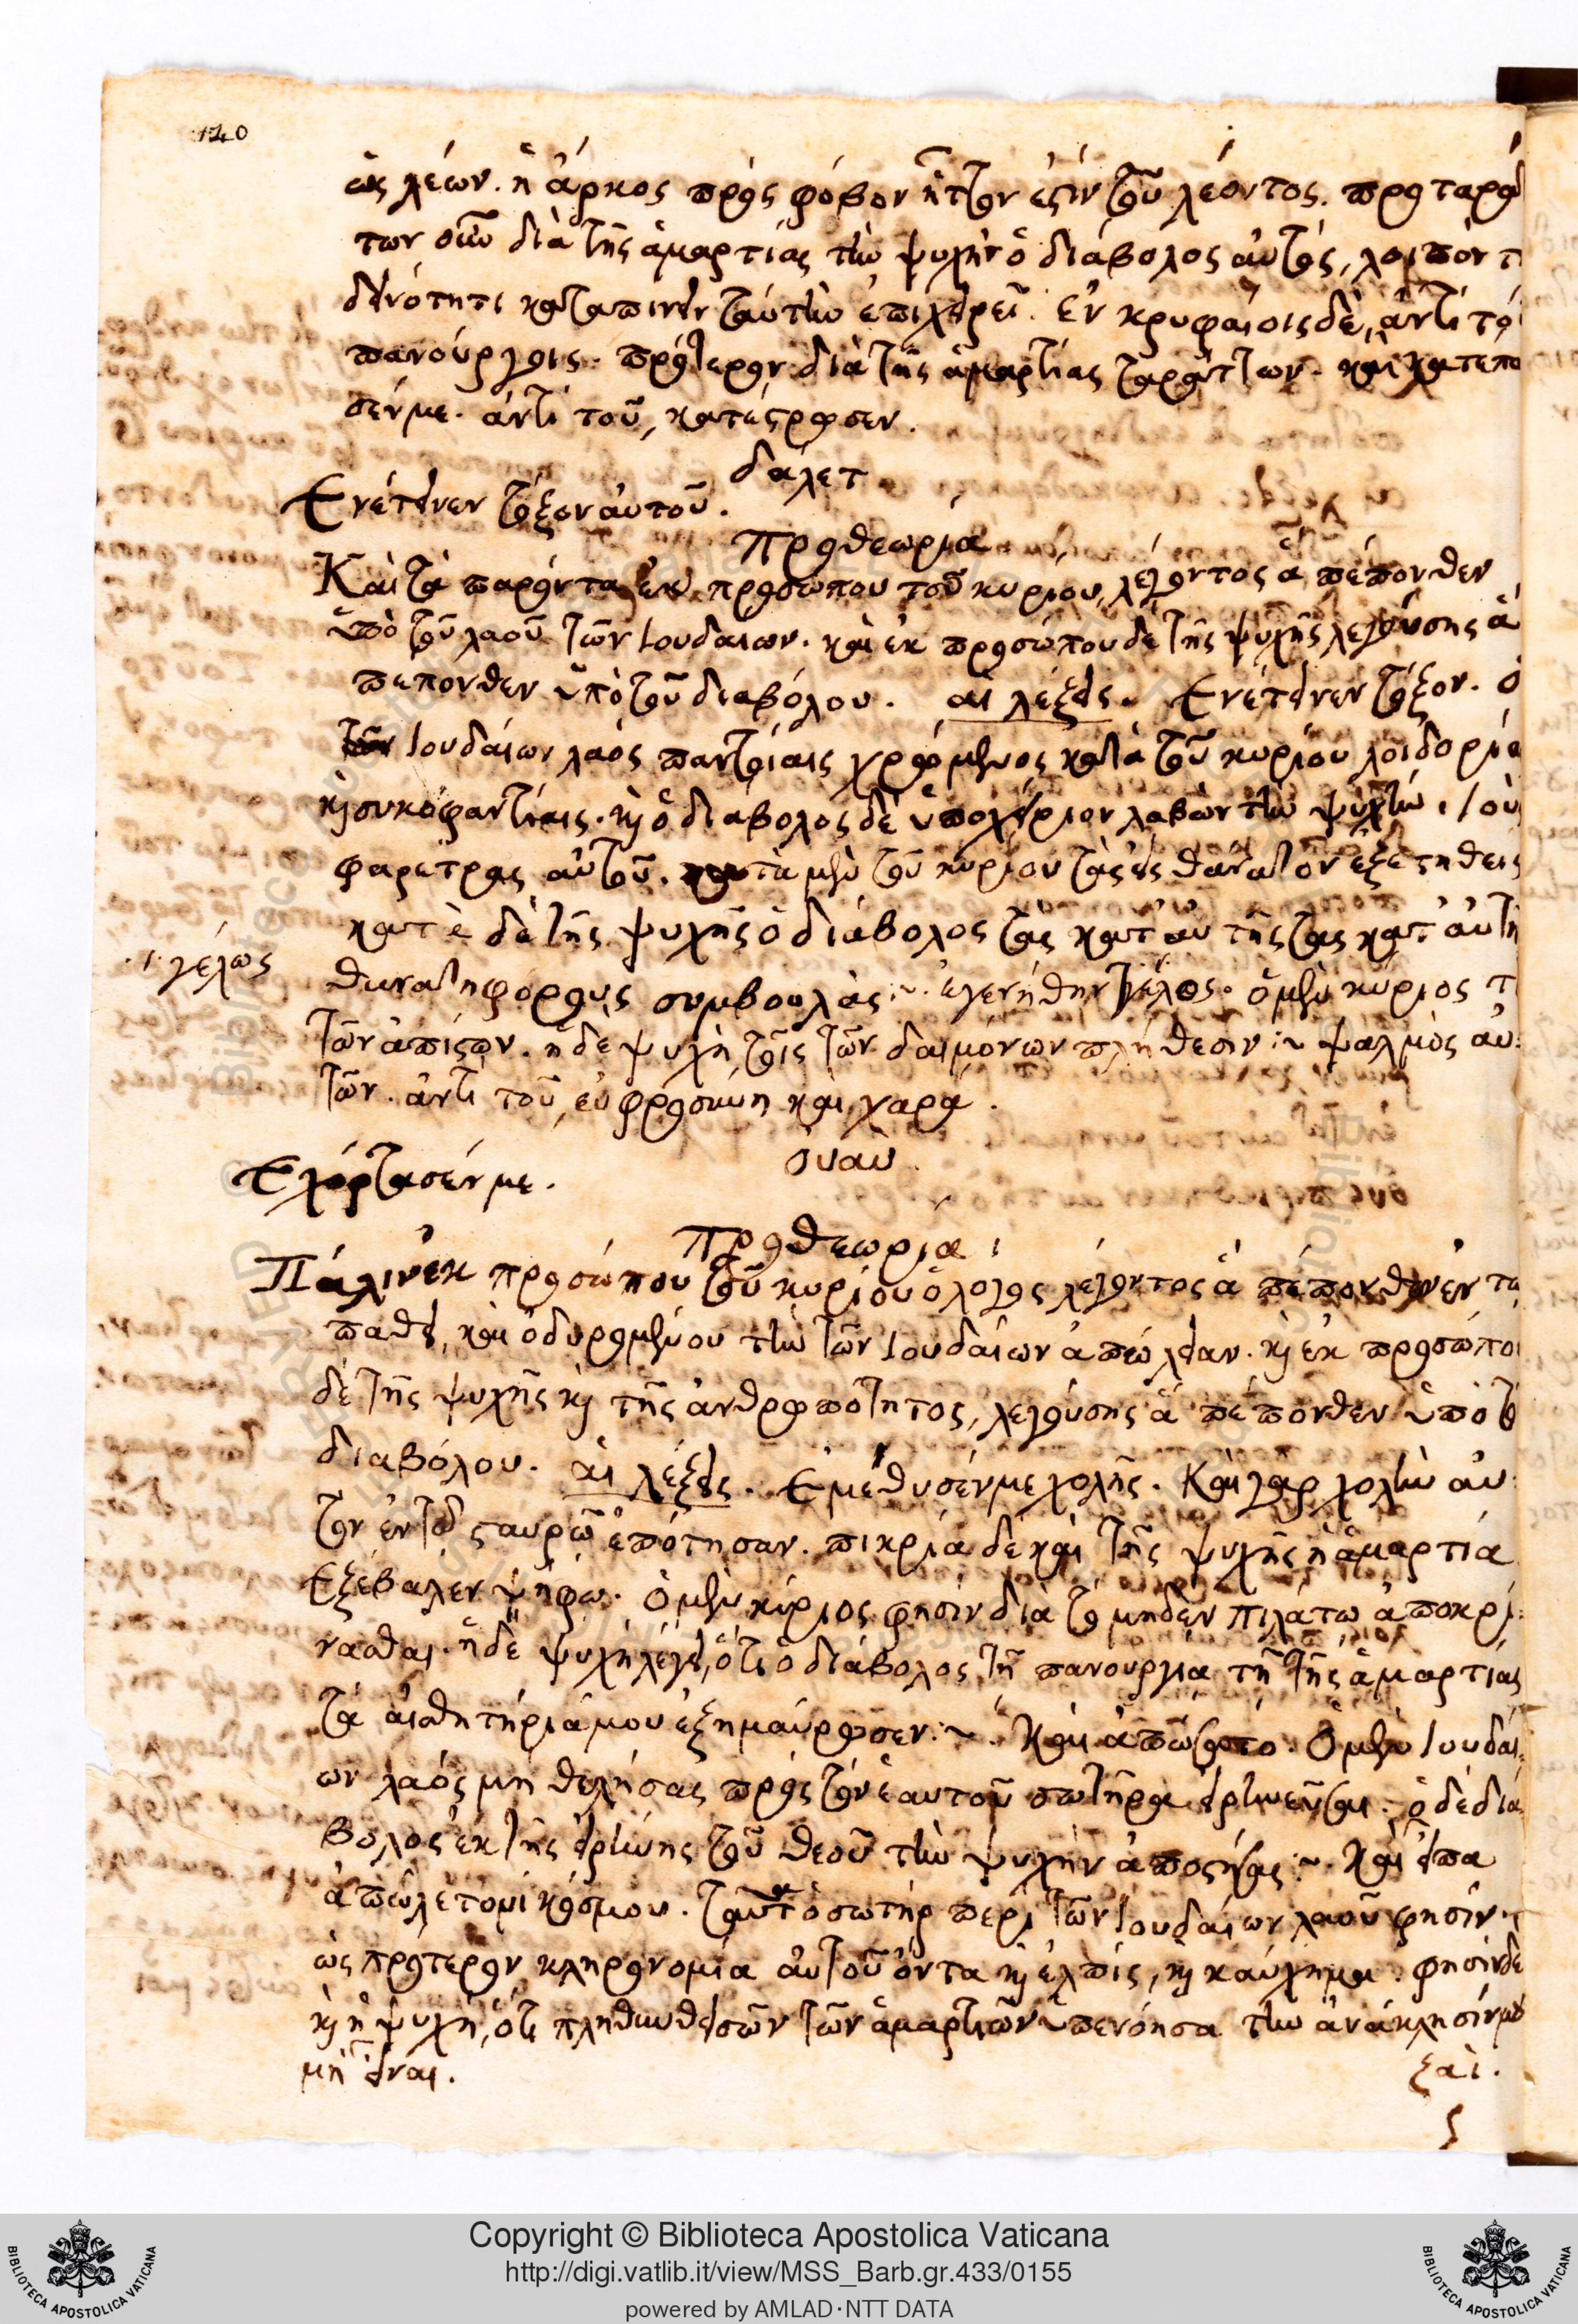 140
ὡς λέων. ἡ ἄρκος πρὸς φόβον ἥττον ἐστὶν τοῦ λέοντος. προταράτ
των οὖν διὰ τῆς ἁμαρτίας τὴν ψυχὴν ὁ διάβολος αὐτὸς, λοιπὸν τ
δεινότητι καταπινεῖν ταύτην ἐπιχειρεῖ. ἐν κρυφαίοις δὲ, ἀντὶ τοῦ
πανούργοις. πρότερον διὰ τῆς ἁμαρτίας ταράττων. καὶ κατεπα
σέν με. ἀντὶ τοῦ, κατέστρωσεν.
δάλετ
Ενέτεινεν τόξον αὐτοῦ.
Προθεωρία
Καὶ τὰ παρόντα ἐκ προσώπου τοῦ κυρίου, λέγοντος ἃ πέπονθεν
ὑπὸ τοῦ λαοῦ τῶν Ιουδαίων. καὶ ἐκ προσώπου δὲ τῆς ψυχῆς λεγούσης ἃ
πέπονθεν ὑπὸ τοῦ διαβόλου. αἱ λέξεις. Ενέτεινεν τόξον. ὁ
τῶν Ιουδαίων λαὸς παντοίαις χρώμενος κατὰ τοῦ κυρίου λοιδορία
καὶ συκοφαντίαις. καὶ ὁ διάβολος δὲ ὑποχείριον λαβὼν τὴν ψυχὴν. ἰοὺ
φαρέτρας αὐτοῦ. κατὰ μὲν τοῦ κυρίου τὰς εἰς θάνατον ἐξετηθεις
κατὰ δὲ τῆς ψυχῆς ὁ διάβολος τὰς κατ' αὐτῆς τὰς κατ' αὐτὴ
θανατηφόρους συμβουλὰς :~ ἐγενήθην γέλως. ὁ μὲν κύριος τ
γέλως
τῶν ἀπίστων. ἡ δὲ ψυχὴ τοῖς τῶν δαιμόνων πλήθεσιν :~ ψαλμὸς αὐ
τῶν. ἀντὶ τοῦ εὐφροσύνη καὶ χαρά.
οὐαῦ.
Εχόρτασέν με.
Προθεωρία
Πάλιν ἐκ προσώπου τοῦ κυρίου ὁ λόγος λέγοντος ἃ πέπονθεν ἐν τῶ
πάθει, καὶ ὀδυρομένου τὴν τῶν Ιουδαίων ἀπώλειαν. καὶ ἐκ προσώπου
δὲ τῆς ψυχῆς καὶ τῆς ἀνθρωπότητος, λεγούσης ἃ πέπονθεν ὑπὸ τ
διαβόλου. αἱ λέξεις. Εμέθυσέν με χολῆς. Καὶ γὰρ χολὴν αὐ
τὸν ἐν τῶ σταυρῶ ἐπότησαν. πικρία δὲ καὶ τῆς ψυχῆς ἡ ἁμαρτία
Εξέβαλεν ψήφω. ὁ μὲν κύριος φησὶν διὰ τὸ μηδὲν πιλάτω ἀποκρί
νασθαι. ἡ δὲ ψυχὴ λέγει, ὅτι ὁ διάβολος τῆ πανουργία τῆ τῆς ἁμαρτίας
τὰ αἰσθητήριά μου ἐξημαύρωσεν :~ Καὶ ἀπώσατο. ὁ μὲν Ιουδαί
ων λαὸς μὴ θελήσας πρὸς τὸν ἑαυτοῦ σωτῆρα εἰρηνεῦσαι. ὁ δὲ διά
βολος ἐκ τῆς εἰρήνης τοῦ θεοῦ τὴν ψυχὴν ἀποστήσας :~ Καὶ εἶπα
ἀπώλετο νίκος μου. ταῦτα ὁ σωτὴρ περὶ τῶν Ιουδαίων λαοῦ φησὶν
ὡς πρότερον κληρονομία αὐτοῦ ὄντα καὶ ἐλπὶς, καὶ καύχημα. φησὶν δὲ
καὶ ἡ ψυχὴ, ὅτι πληθυνθεισῶν τῶν ἁμαρτιῶν ὑπενόησα τὴν ἀνάκλησίν μου
μὴ εἶναι.
ζαὶ.
Copyright © Biblioteca Apostolica Vaticana
http://digi.vatlib.it/view/MSS_Barb.gr.433/0155
powered by AMLAD·NTT DATA
BIBLIOTECA APOSTOLICA VATICANA
BIBLIOTECA APOSTOLICA VATICANA